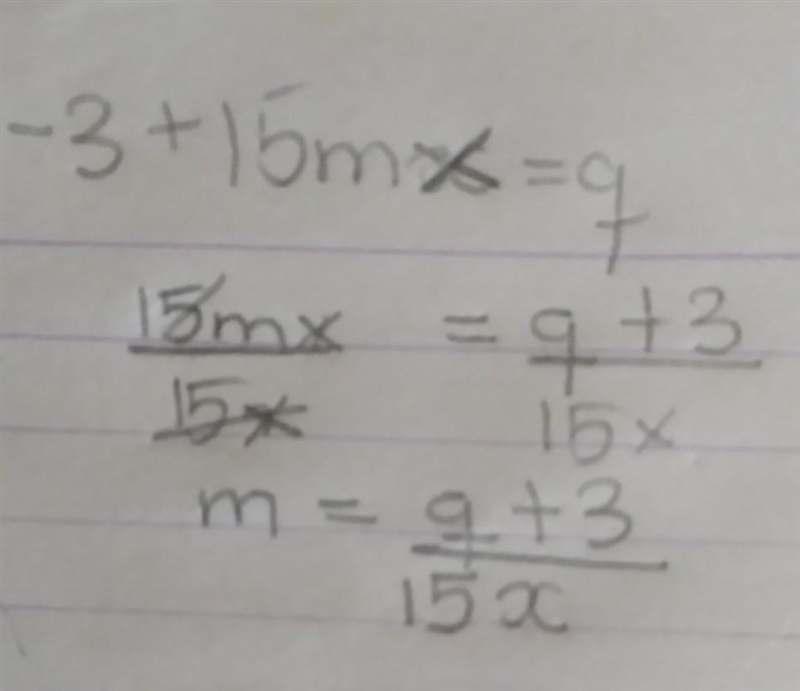 -3 + 15mx = q
15mx = q + 3
15x 15x
m = q + 3
15x